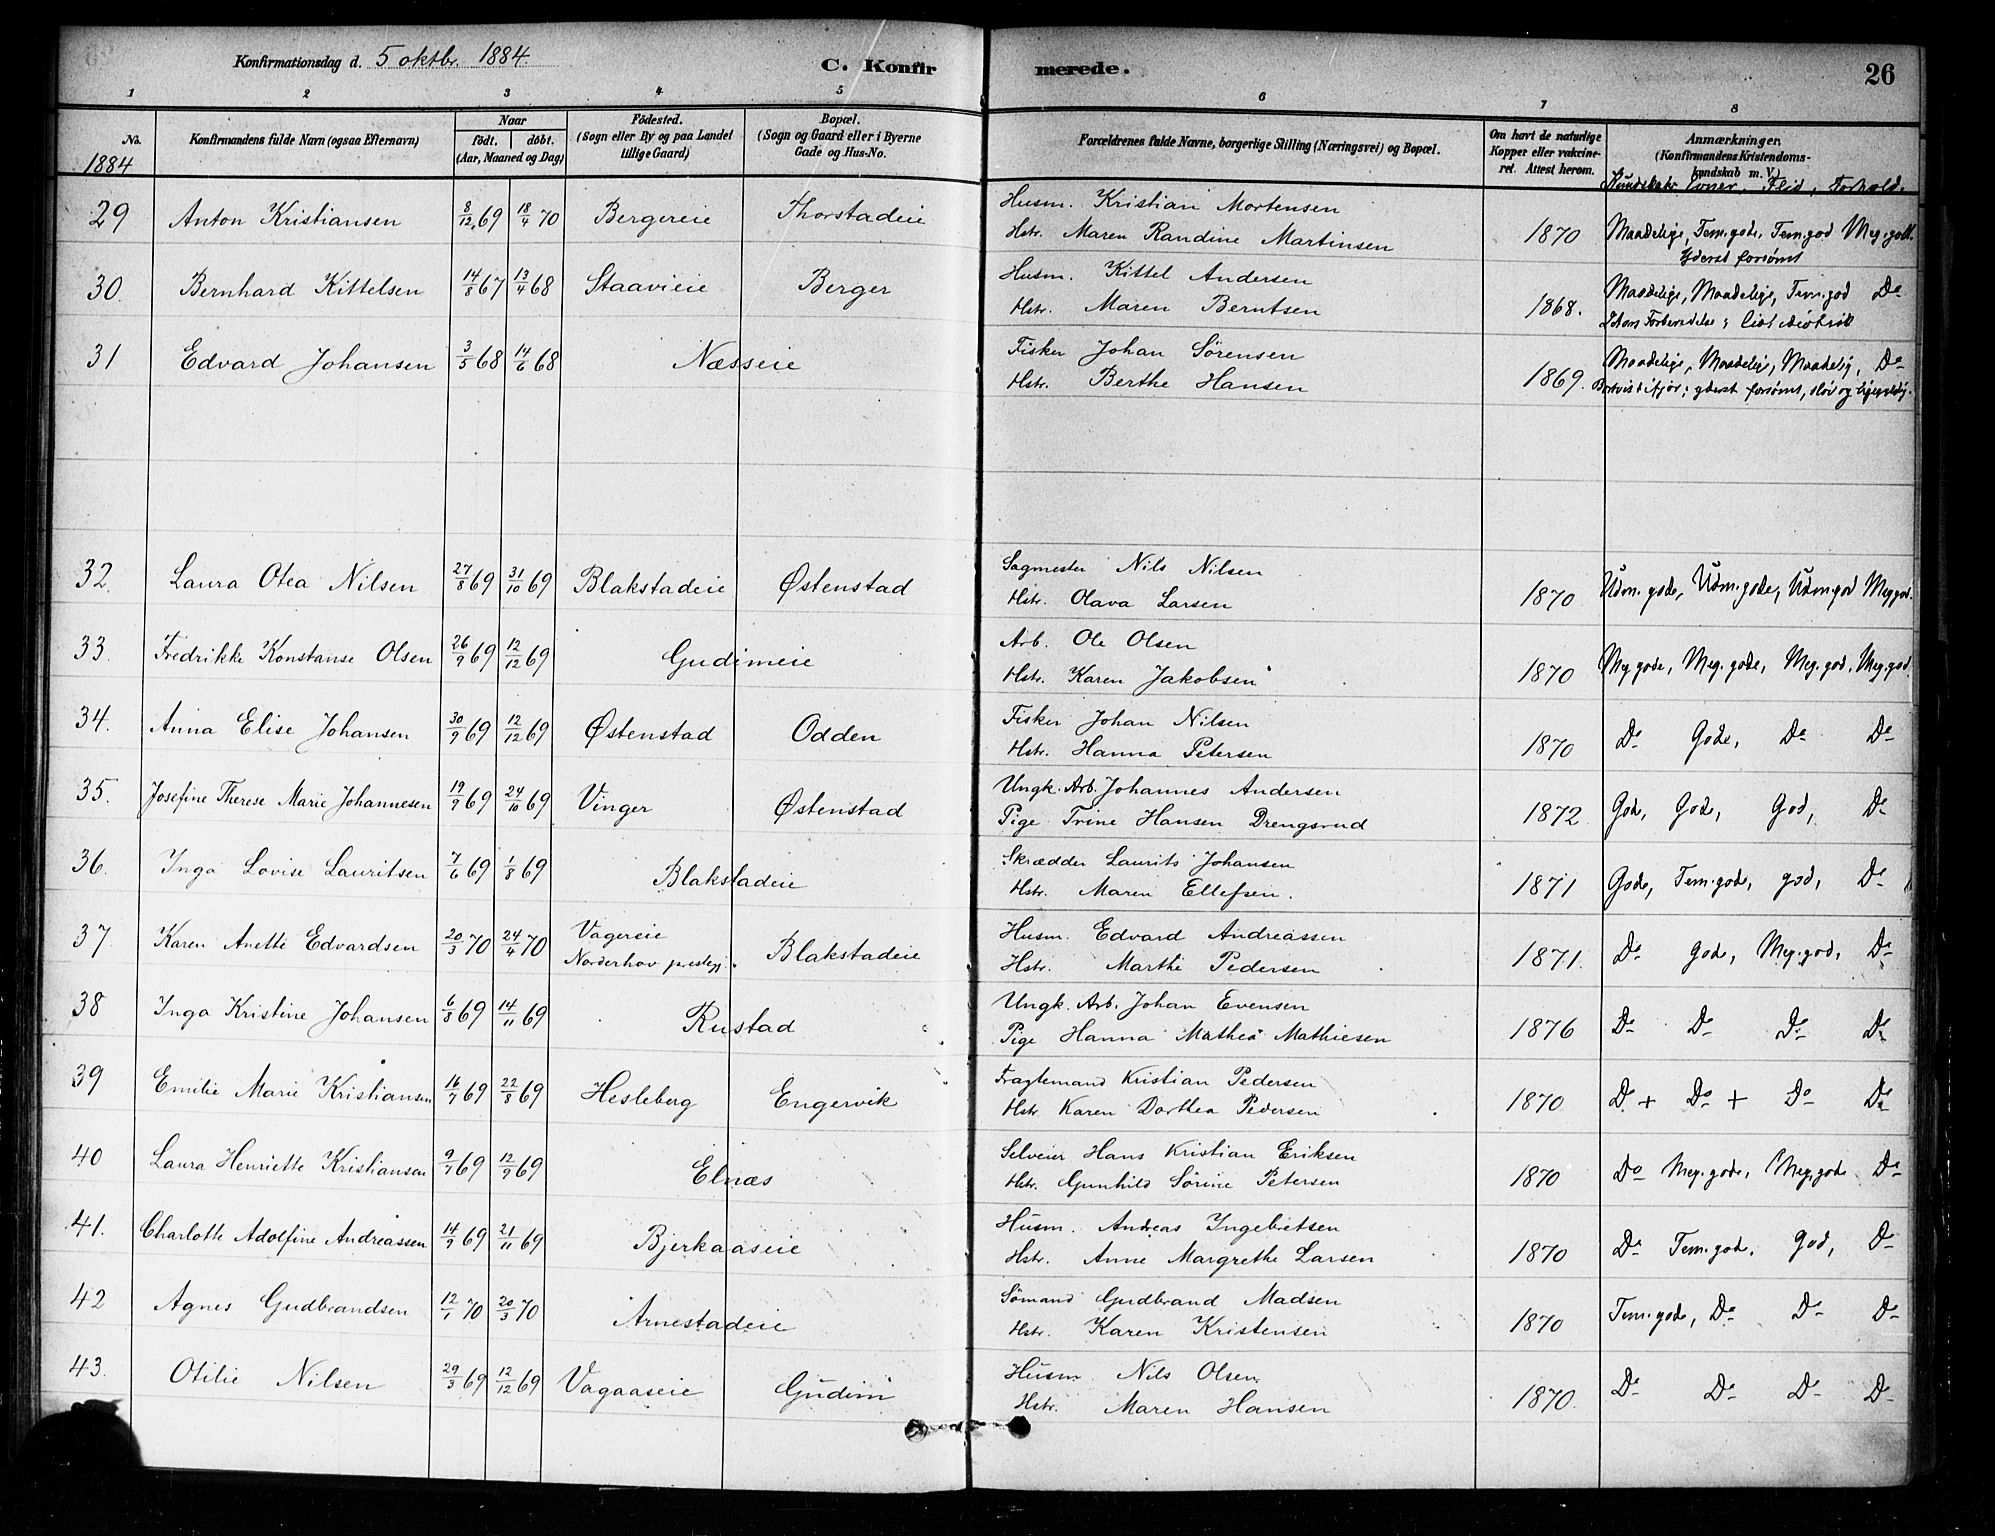 Konfirmationsdag d. 5 oktbr. 1884. C. Konfirmerede. 26
1 2 3 4 5 6 7 8
No. Konfirmandens fulde Navn (ogsaa Efternavn) Naar født. døbt. (Aar, Maaned og Dag) Fødested. (Sogn eller By og paa Landet tillige Gaard) Bopæl. (Sogn og Gaard eller i Byerne Gade og Hus-No. Forældrenes fulde Navne, borgerlige Stilling (Næringsvei) og Bopæl. Om havt de naturlige Kopper eller vakcineret. Attest herom. Anmærkninger. (Konfirmandens Kristendomskundskab m. V.)
1884 Kundskaber Evner. Flid, Forhold.
29 Anton Kristiansen 8/12 69 18/4 70 Bergereie Thorstadeie Husm. Kristian Mortensen
Hstr. Maren Randine Martinsen 1870 Maadelige, Tem. gode, Tem. god Meg. godt.
Yderst forsømt
30. Bernhard Kittelsen 14/8 67 13/4 68 Staavieie Berger Husm. Kittel Andersen
Hstr. Maren Berntsen 1868. Maadelige, Maadelige, Tem. god Do
31 Edvard Johansen 3/5 68 14/6 68 Næsseie Fisker Johan Sørensen
Hstr. Berthe Hansen 1869. Maadelige, Maadelige, Maadelig, Do
Bortvist ifjor; yderst forsømt, sløv og ligegyldig.
32. Laura Otea Nilsen 27/8 69 31/10 69 Blakstadeie Østenstad Sagmester Nils Nilsen
Hstr. Olava Larsen 1870 Udm. gode, Udm. gode, Udm. god Meg god.
33. Fredrikke Konstanse Olsen 26/9 69 12/12 69 Gudimeie Arb. Ole Olsen
Hstr. Karen Jakobsen 1870 Meg gode, Meg. gode, Meg. god, Meg. god.
34. Anna Elise Johansen 30/9 69 12/12 69 Østenstad Odden Fisker Johan Nilsen
Hstr. Hanna Petersen 1870 Do Gode, Do Do
35. Josefine Therese Marie Johannesen 19/9 69 24/10 69 Vinger Østenstad Ungk. Arb. Johannes Andersen
Pige Trine Hansen Drengsrud 1872 Gode, Gode, God, Do
36. Inga Lovise Lauritsen 7/6 69 1/8 69 Blakstadeie Skrædder Laurits Johansen
Hstr. Maren Ellefsen. 1871 Gode, Tem. gode, god, Do
37 Karen Anette Edvardsen 20/3 70 24/4 70 Vagereie
Norderhov prestegj. Blakstadeie Husm. Edvard Andreassen
Hstr. Marthe Pedersen 1871. Do gode, Meg. god, Do
38 Inga Kristine Johansen 6/8 69 14/11 69 Rustad Ungk. Arb. Johan Evensen
Pige Hanna Mathea Mathiesen 1876 Do Do Do Do
39 Emilie Marie Kristiansen 16/7 69 22/8 69 Hesleberg Engervik Fragtemand Kristian Pedersen
Hstr. Karen Dorthea Pedersen 1870 Do + Do + Do Do
40 Laura Henriette Kristiansen 9/7 69 12/9 69 Elnæs Selveier Hans Kristian Eriksen
Hstr. Gunhild Sørine Petersen 1870 Do Meg. gode, Meg. gode Do
41. Charlotte Adolfine Andreassen 14/9 69 21/11 69 Bjerkaaseie Husm. Andreas Ingebretsen
Hstr. Anne Margrethe Larsen 1870 Do Tem. gode, God, Do
42 Agnes Gudbrandsen 12/1 70 20/3 70 Arnestadeie Sømand Gudbrand Madsen
Hstr. Karen Kristensen 1870 Tem. gode, Do Do Do
43. Otilie Nilsen 29/3 69 12/12 69 Vagaaseie Gudim Husm Nils Olsen
Hstr. Maren Hansen 1870. Do Do Do Do